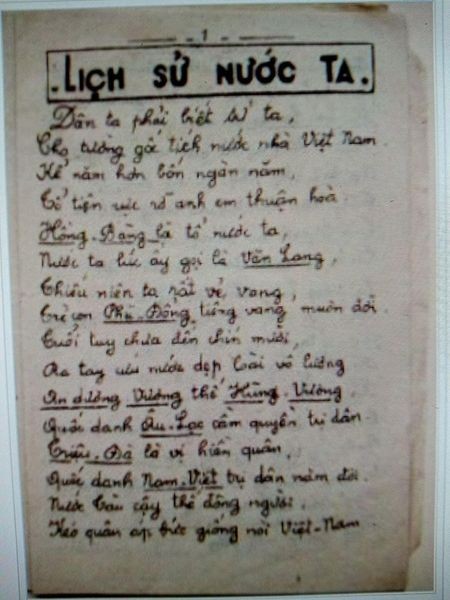 - 1 -
.LỊCH SỬ NƯỚC TA.
Dân ta phải biết sử ta,
Cho tường gốc tích nước nhà Việt Nam.
Kể năm hơn bốn ngàn năm,
Tổ tiên rực rỡ anh em thuận hoà.
Hồng-Bàng là tổ nước ta,
Nước ta lúc ấy gọi là Văn Lang,
Thiếu niên ta rất vẻ vang,
Trẻ con Phù-Đổng tiếng vang muôn đời.
Tuổi tuy chưa đến chín mười,
Ra tay cứu nước dẹp loài vô lương
An dương Vương thế Hùng-Vương,
Quốc danh Âu-Lạc cầm quyền trị dân.
Triệu-Đà là vị hiền quân,
Quốc danh Nam-Việt trị dân năm đời.
Nước Tàu cậy thế đông người,
Kéo quân áp bức giống nòi Việt-Nam.